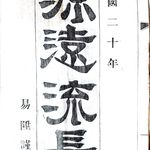 國二十年
源遠流長
易熙謹